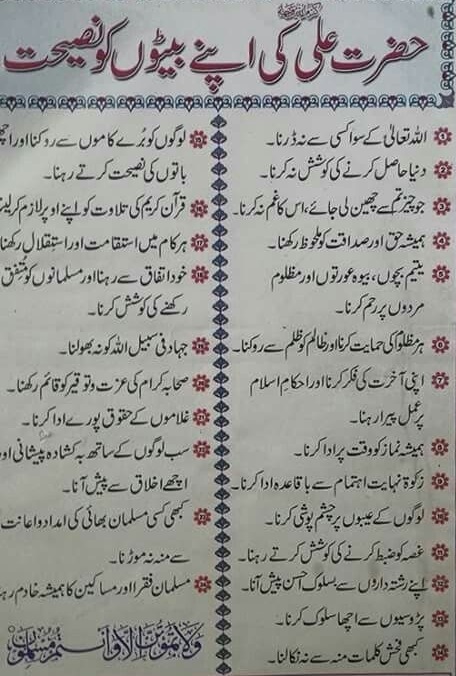 کرم اللہ وجہہ
حضرت علی کی اپنے بیٹوں کو نصیحت
1 اللہ تعالیٰ کے سوا کسی سے نہ ڈرنا۔
2 دنیا حاصل کرنے کی کوشش نہ کرنا۔
3 جو چیز تم سے چھین لی جائے، اس کا غم نہ کرنا۔
4 ہمیشہ حق اور صداقت کو ملحوظ رکھنا۔
5 یتیم بچوں، بیوہ عورتوں اور مظلوم
مردوں پر رحم کرنا۔
6 ہر مظلوم کی حمایت کرنا اور ظالم کو ظلم سے روکنا۔
7 اپنی آخرت کی فکر کرنا اور احکامِ اسلام
پر عمل پیرا رہنا۔
8 ہمیشہ نماز کو وقت پر ادا کرنا۔
9 زکوٰۃ نہایت اہتمام سے باقاعدہ ادا کرنا۔
10 لوگوں کے عیبوں پر چشم پوشی کرنا۔
11 غصہ کو ضبط کرنے کی کوشش کرتے رہنا۔
12 اپنے رشتہ داروں سے بسلوک احسن پیش آنا۔
13 پڑوسیوں سے اچھا سلوک کرنا۔
14 کبھی فحش کلمات منہ سے نہ نکالنا۔
15 لوگوں کو بُرے کاموں سے روکنا اور
باتوں کی نصیحت کرتے رہنا۔
16 قرآن کریم کی تلاوت کو اپنے اوپر لازم کر
17 ہر کام میں استقامت اور استقلال رکھنا
18 خود اتفاق سے رہنا اور مسلمانوں کو متفق
رکھنے کی کوشش کرنا۔
19 جہاد فی سبیل اللہ کو نہ بھولنا۔
20 صحابہ کرام کی عزت و توقیر کو قائم رکھنا۔
21 غلاموں کے حقوق پورے ادا کرنا۔
22 سب لوگوں کے ساتھ بہ کشادہ پیشانی اور
اچھے اخلاق سے پیش آنا۔
23 کبھی کسی مسلمان بھائی کی امداد و اعانت
سے منہ نہ موڑنا۔
24 مسلمان فقرا اور مساکین کا ہمیشہ خادم
وَلَا تَمُوْتُنَّ اِلَّا وَاَنْتُمْ مُّسْلِمُوْنَ